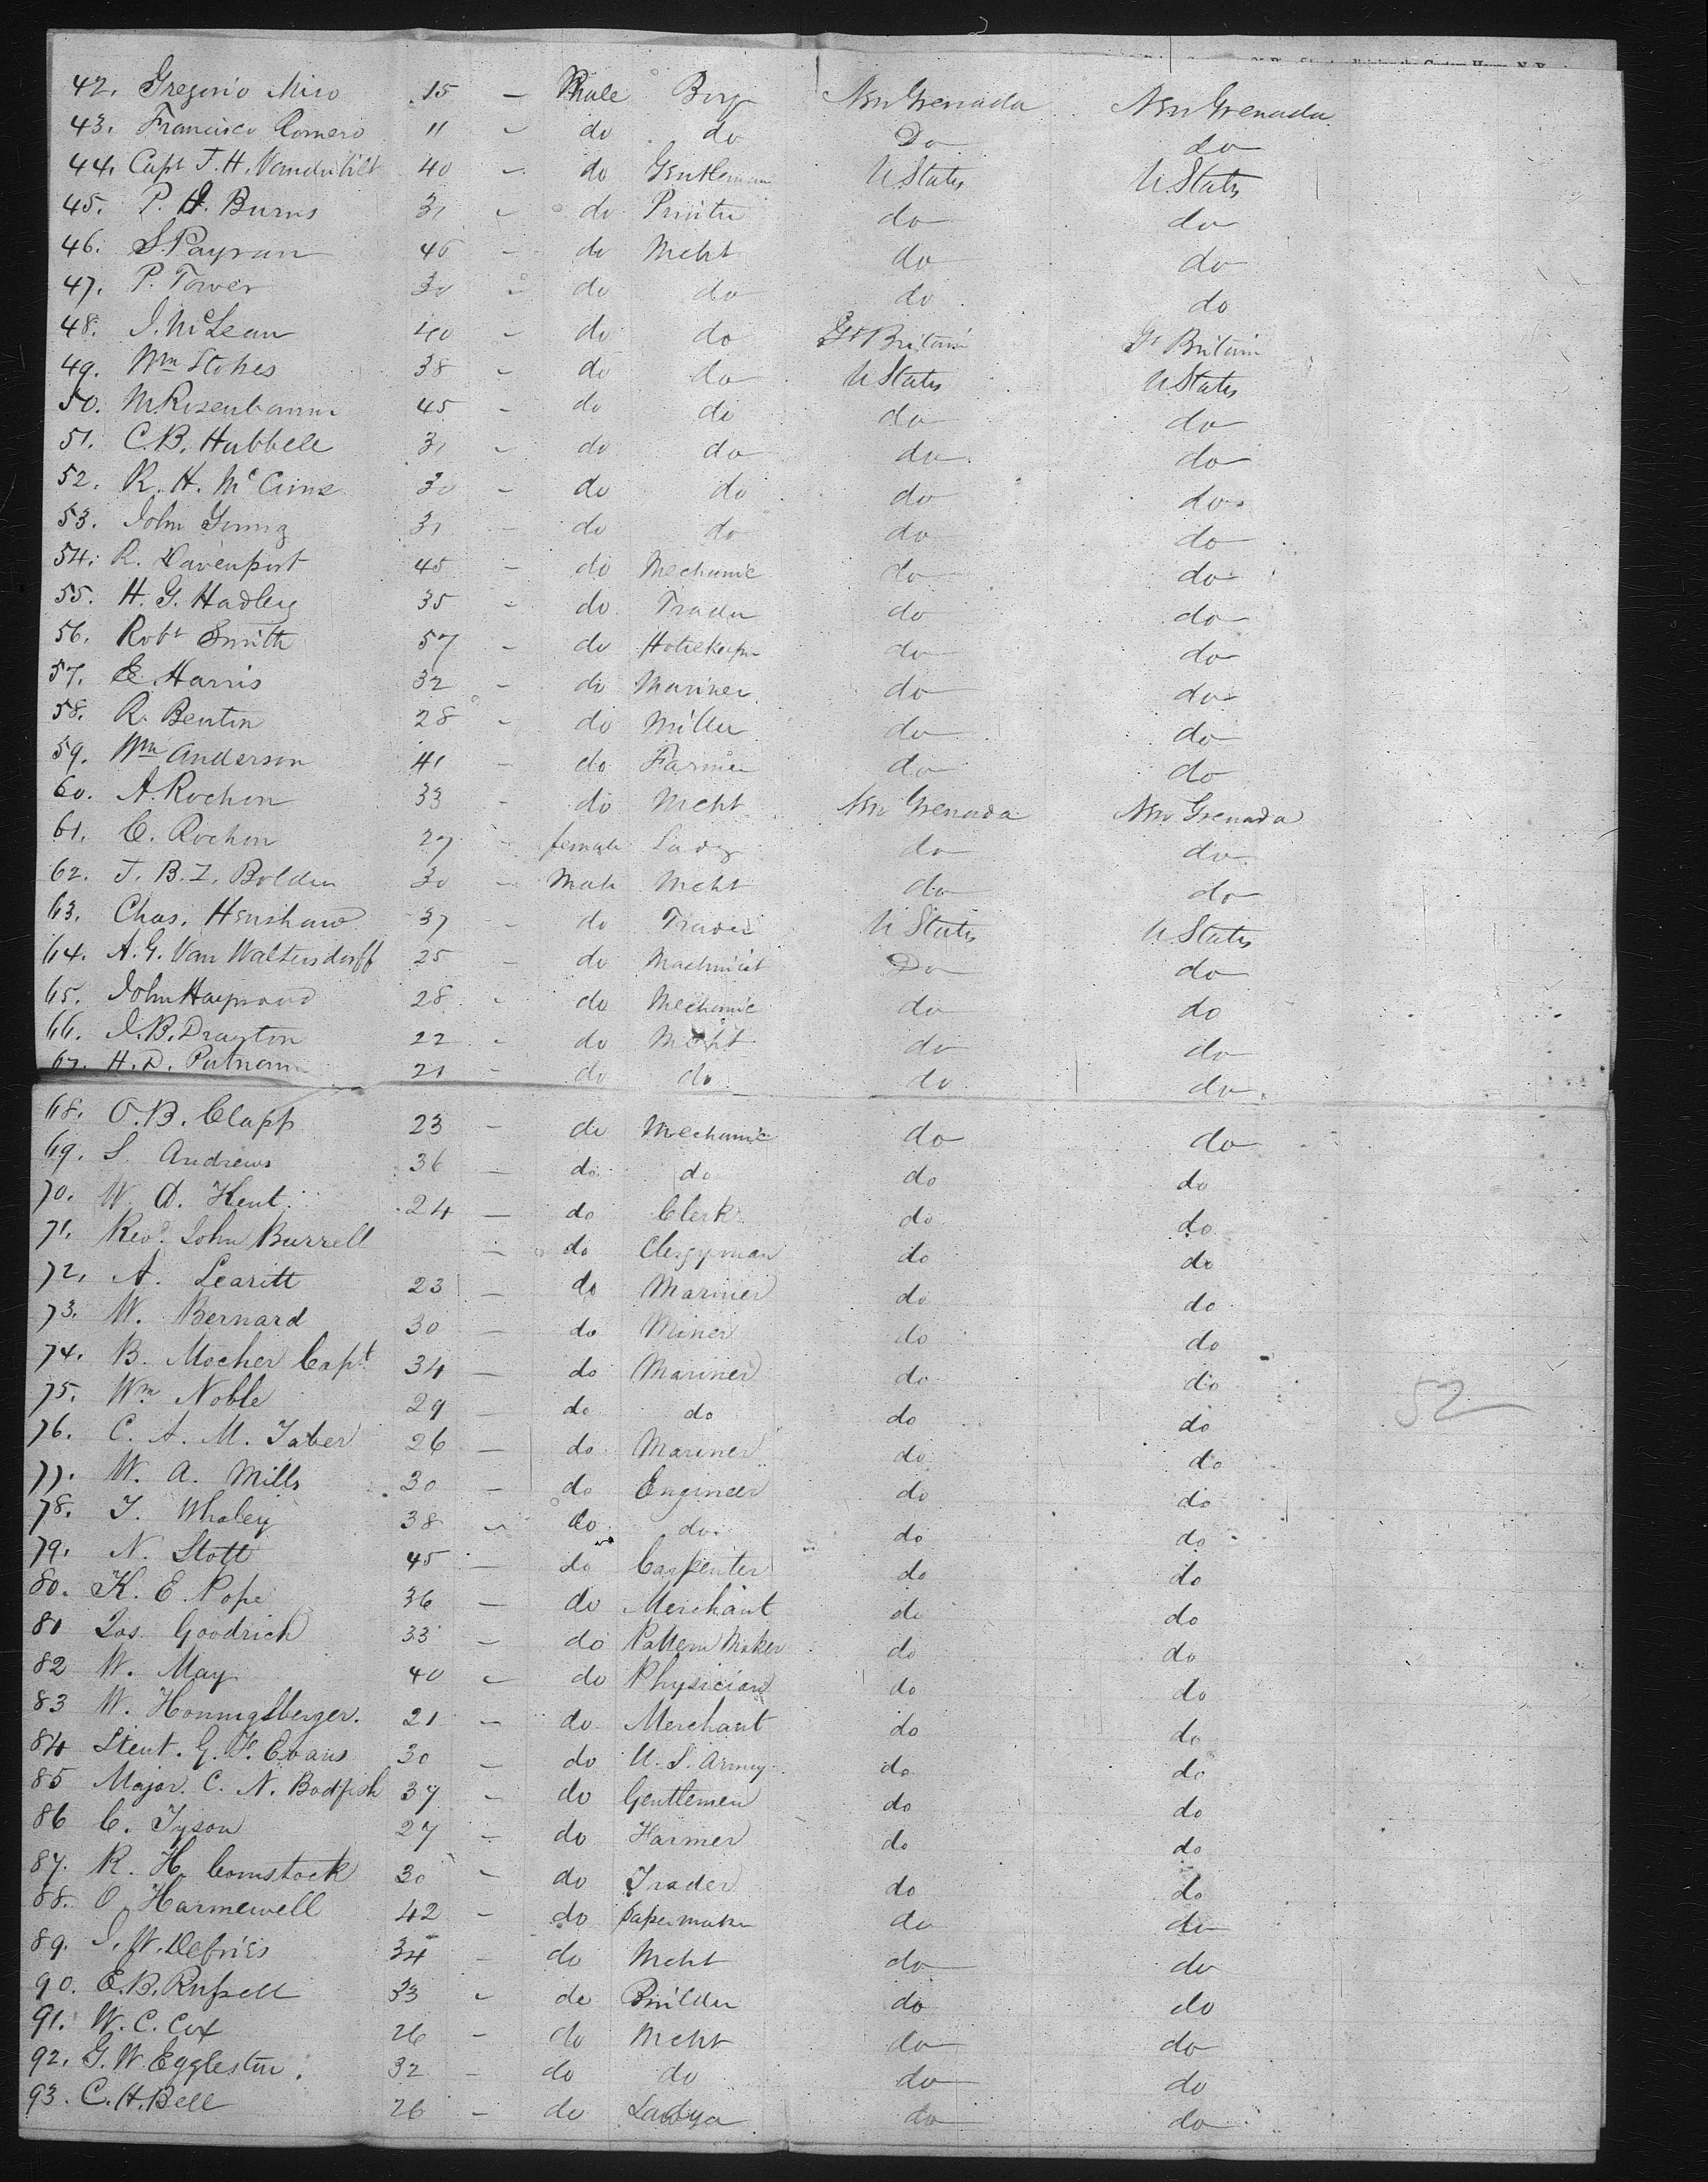 42. Gregorio Miro 15 — Male Boy New Grenada New Grenada
43. Francisco Romero 11 - do do Do do
44. Capt J. H. Vanderbilt 40 - do Gentleman U States U. States
45. P. H. Burns 31 - do Printer do do
46. S. Payran 46 - do Mcht do do
47. P. Tower 30 - do do do do
48. J. McLean 40 - do do Gt Britain Gt Britain
49. Wm Stokes 38 - do do U States U. States
50. M Rosenbaum 45 - do do do do
51. C. B. Hubbell 31 - do do do do
52. R. H. Mc 30 - do do do do
53. John Young 31 - do do do do
54. R. Davenport 45 - do Mechanic do do
55. H. G. Hadley 35 - do Trader do do
56. Robt Smith 57 - do Hotelkeeper do do
57. E. Harris 32 - do Mariner do do
58. R. Bentin 28 - do Miller do do
59. Wm Anderson 41 - do Farmer do do
60. A. Rochon 33 - do Mcht New Grenada New Grenada
61. C. Rochon 27 - female Lady do do
62. J. B. I. Bolden 30 - Male Mcht do do
63. Chas. Henshaw 37 - do Trader U States U. States
64. A. G. Van Waltersdorff 25 - do Machinist Do do
65. John Haywood 28 - do Mechanic do do
66. J. B. Drayton 22 - do Mcht do do
67. H. D. Putnam 21 - do do do do
68. O. B. Clapp 23 - do Mechanic do do
69. S. Andrews 36 - do do do do
70. W. A. Kent 24 - do Clerk do do
71. Revd. John Burrell - do Clergyman do do
72. A. Learitt 23 - do Mariner do do
73. W. Bernard 30 - do Miner do do
74. B. Mocher Capt 34 - do Mariner do do
75. Wm Noble 29 - do do do do
76. C. A. M. Taber 26 - do Mariner do do
77. W. A. Mills 30 - do Engineer do do
78. T. Whaley 38 - do do do do
79. N. Stott 45 - do Carpenter do do
80. K. E. Pope 36 - do Merchant do do
81 Jas. Goodrich 33 - do Pattern Maker do do
82 W. May 40 - do Physician do do
83 W. Honnigsberger. 21 - do Merchant do do
84 Lieut. G. F. Evans 30 - do U. S. Army do do
85 Major. C. N. Bodfish 37 - do Gentlemen do do
86 C. Tyson 27 - do Farmer do do
87. R. H. Comstock 30 - do Trader do do
88. O. Harmewell 42 - do papermaker do do
89. J. W. Defries 34 - do Mcht do do
90. E. B. Russell 33 - do Builder do do
91. W. C. Cox 26 - do Mcht do do
92. G. W. Eggleston. 32 - do do do do
93. C. H. Bell 26 - do do do
52